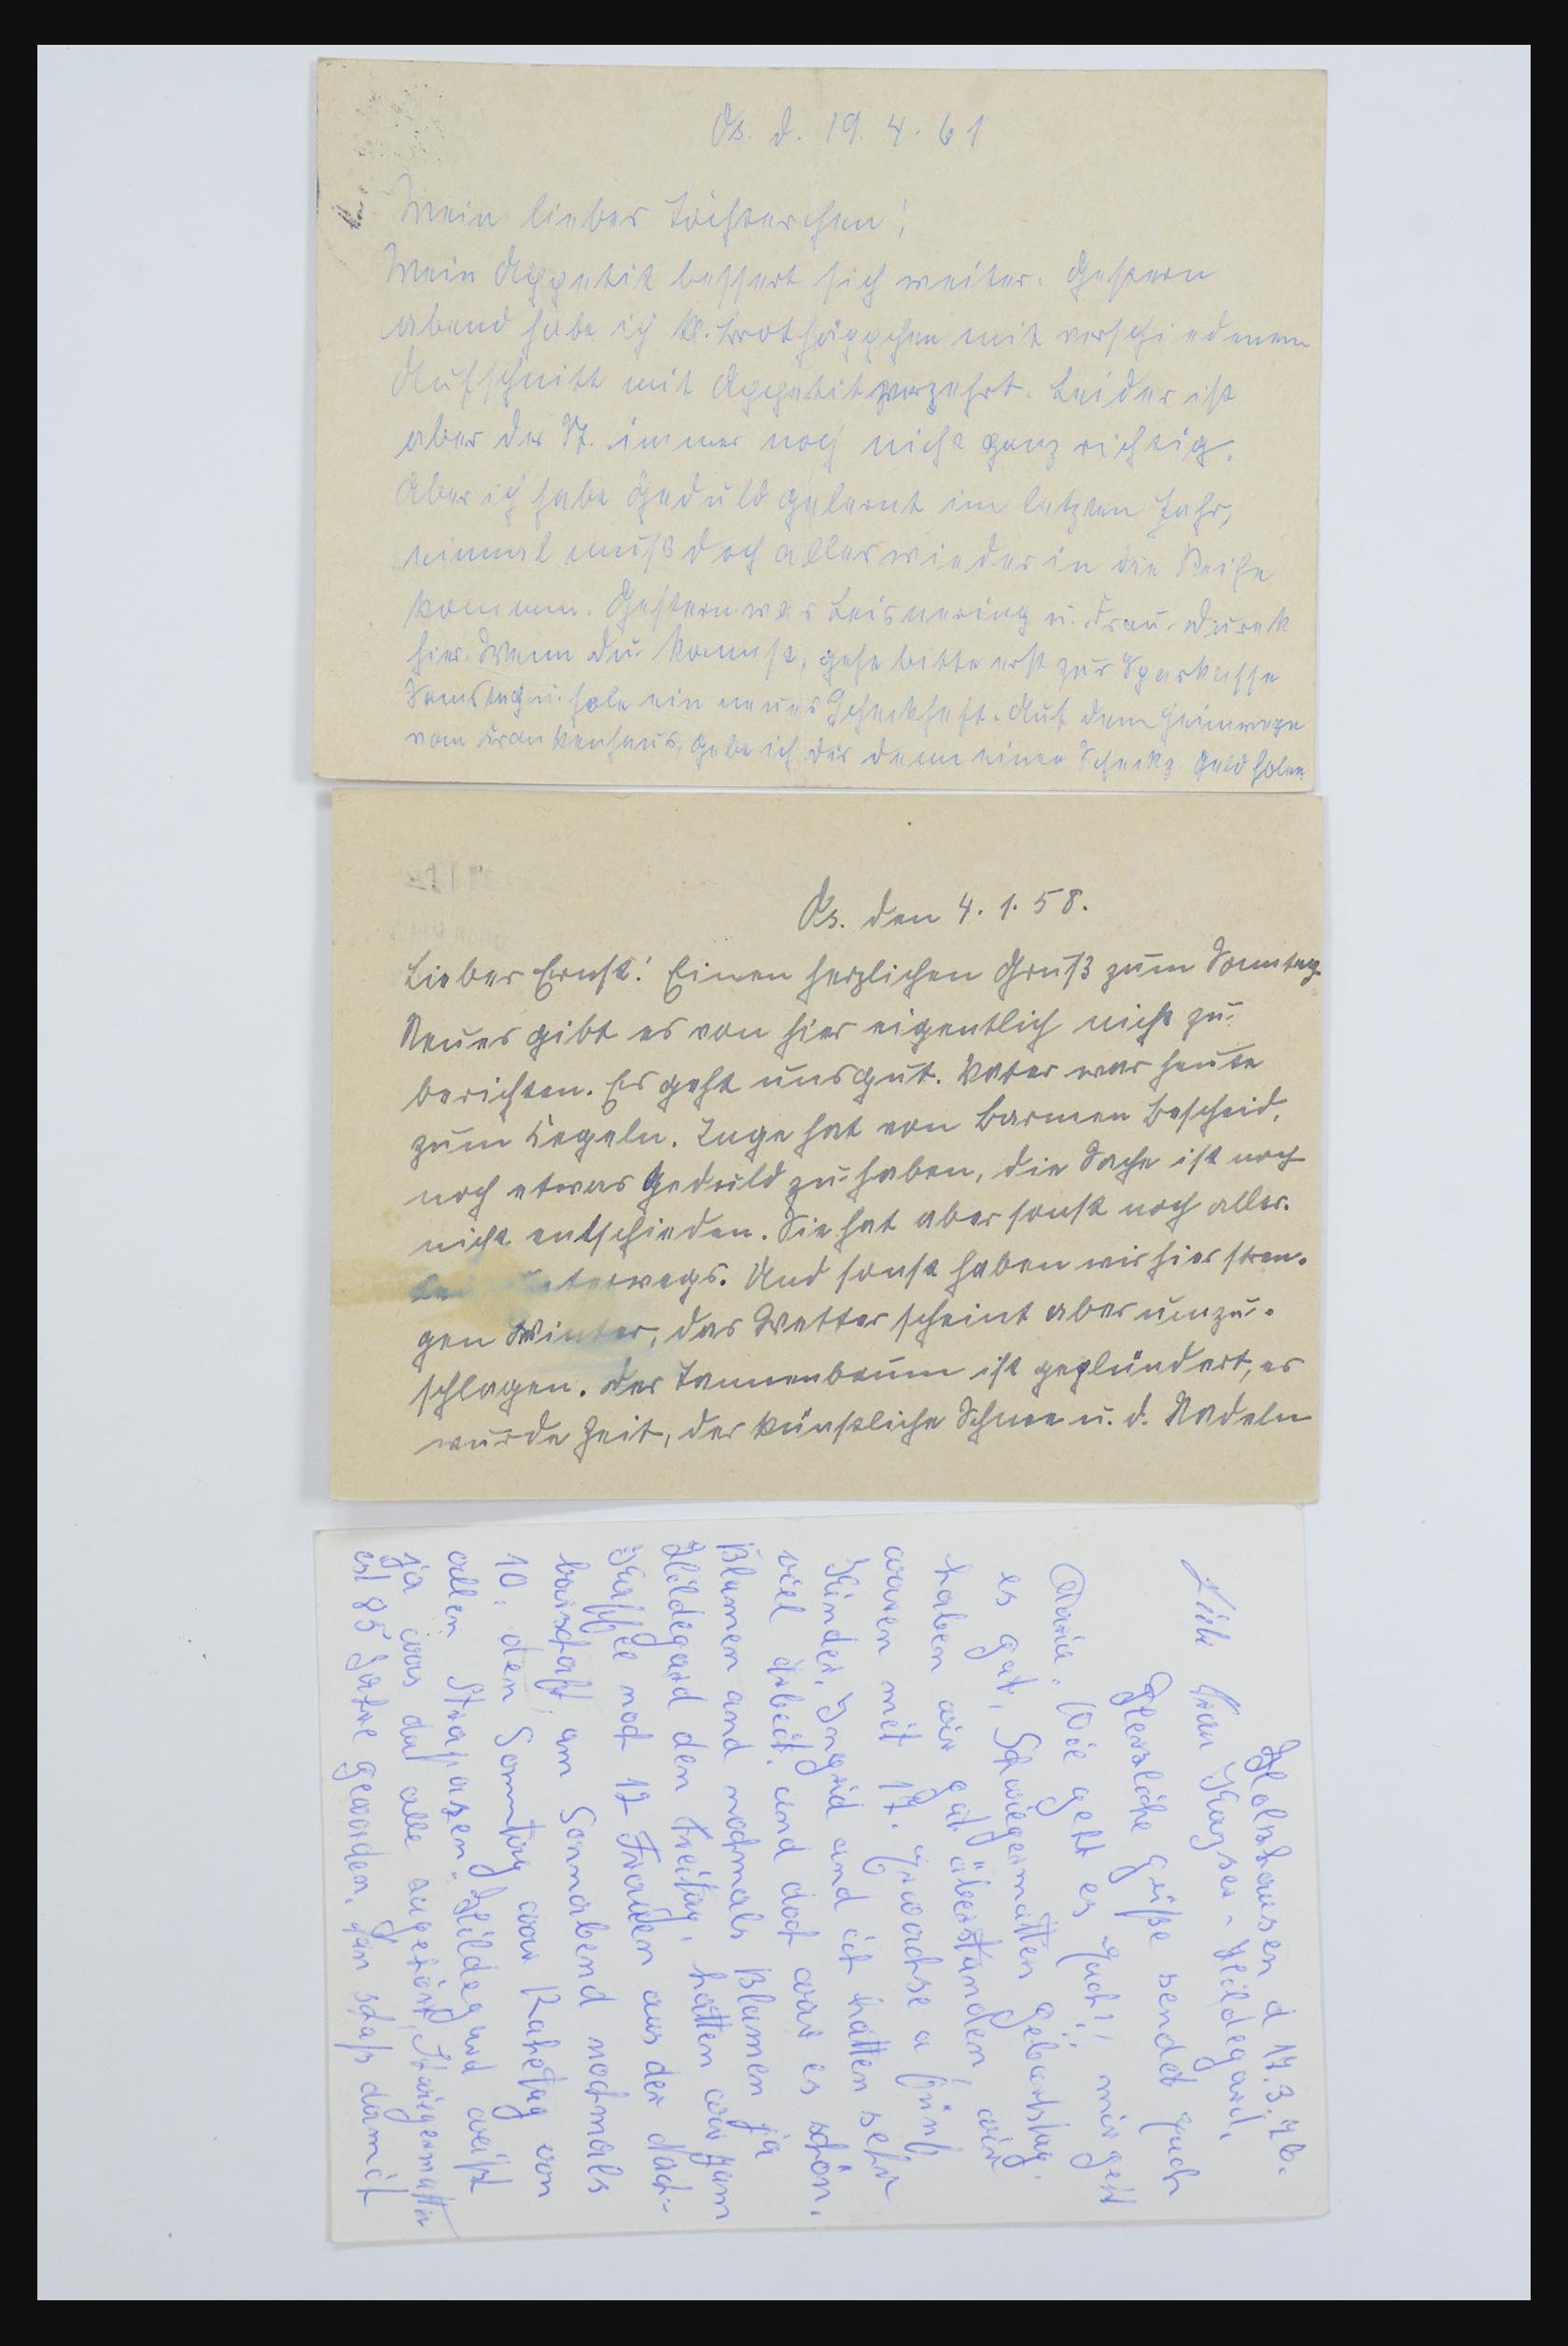 Os. d. 19. 4. 61
Mein liebes Töchterchen!
Mein Appetit bessert sich weiter. Gestern
abend habe ich kl. Brothäppchen mit verschiedenem
Aufschnitt mit Appetit verzehrt. Leider ist
aber der St. immer noch nicht ganz richtig.
Aber ich habe Geduld gelernt im letzten Jahr,
einmal muß doch alles wieder in die Reihe
kommen. Gestern war u. Frau
hier. Wenn du kommst, gehe bitte erst zur Sparkasse
Samstag u. hole ein neues Scheckheft. Auf dem Heimwege
vom Krankenhaus, gebe ich dir dann einen Scheck z Geld holen
Os. den 4. 1. 58.
Lieber Ernst! Einen herzlichen Gruß zum Sonntag.
Neues gibt es von hier eigentlich nicht zu
berichten. Es geht uns gut. Vater war heute
zum Kegeln. Inge hat von Barmen Bescheid,
noch etwas Geduld zu haben, die Sache ist noch
nicht entschieden. Sie hat aber sonst noch aller-
lei unterwegs. Und sonst haben wir hier stren-
gen Winter, das Wetter scheint aber umzu-
schlagen. Der Tannenbaum ist geplündert, es
wurde Zeit, der künstliche Schnee u. d. Nadeln
Holzhausen d 17.3.76.
Liebe Frau Hildegard,
Herzliche grüße sendet Euch
Maria. Wie geht es Euch!, mir geht
es gut, Schwiegermutters geburtstag.
haben wir gut überstanden, wir
waren mit 17. erwachse u fünf
Kinder, Ingrid und ich hatten sehr
viel arbeit, und doch war es schön.
Blumen und nochmals Blumen ja
Hildegard den Freitag, hatten wir zum
Kaffee noch 12 Frauen aus der Nach-
barschaft, am Sonnabend nochmals
10. den Sonntag war Ruhetag von
allen Strapazen. Hildegard weißt
ja was da alle zugehört, Schwiegermutter
ist 85 Jahre geworden, damit